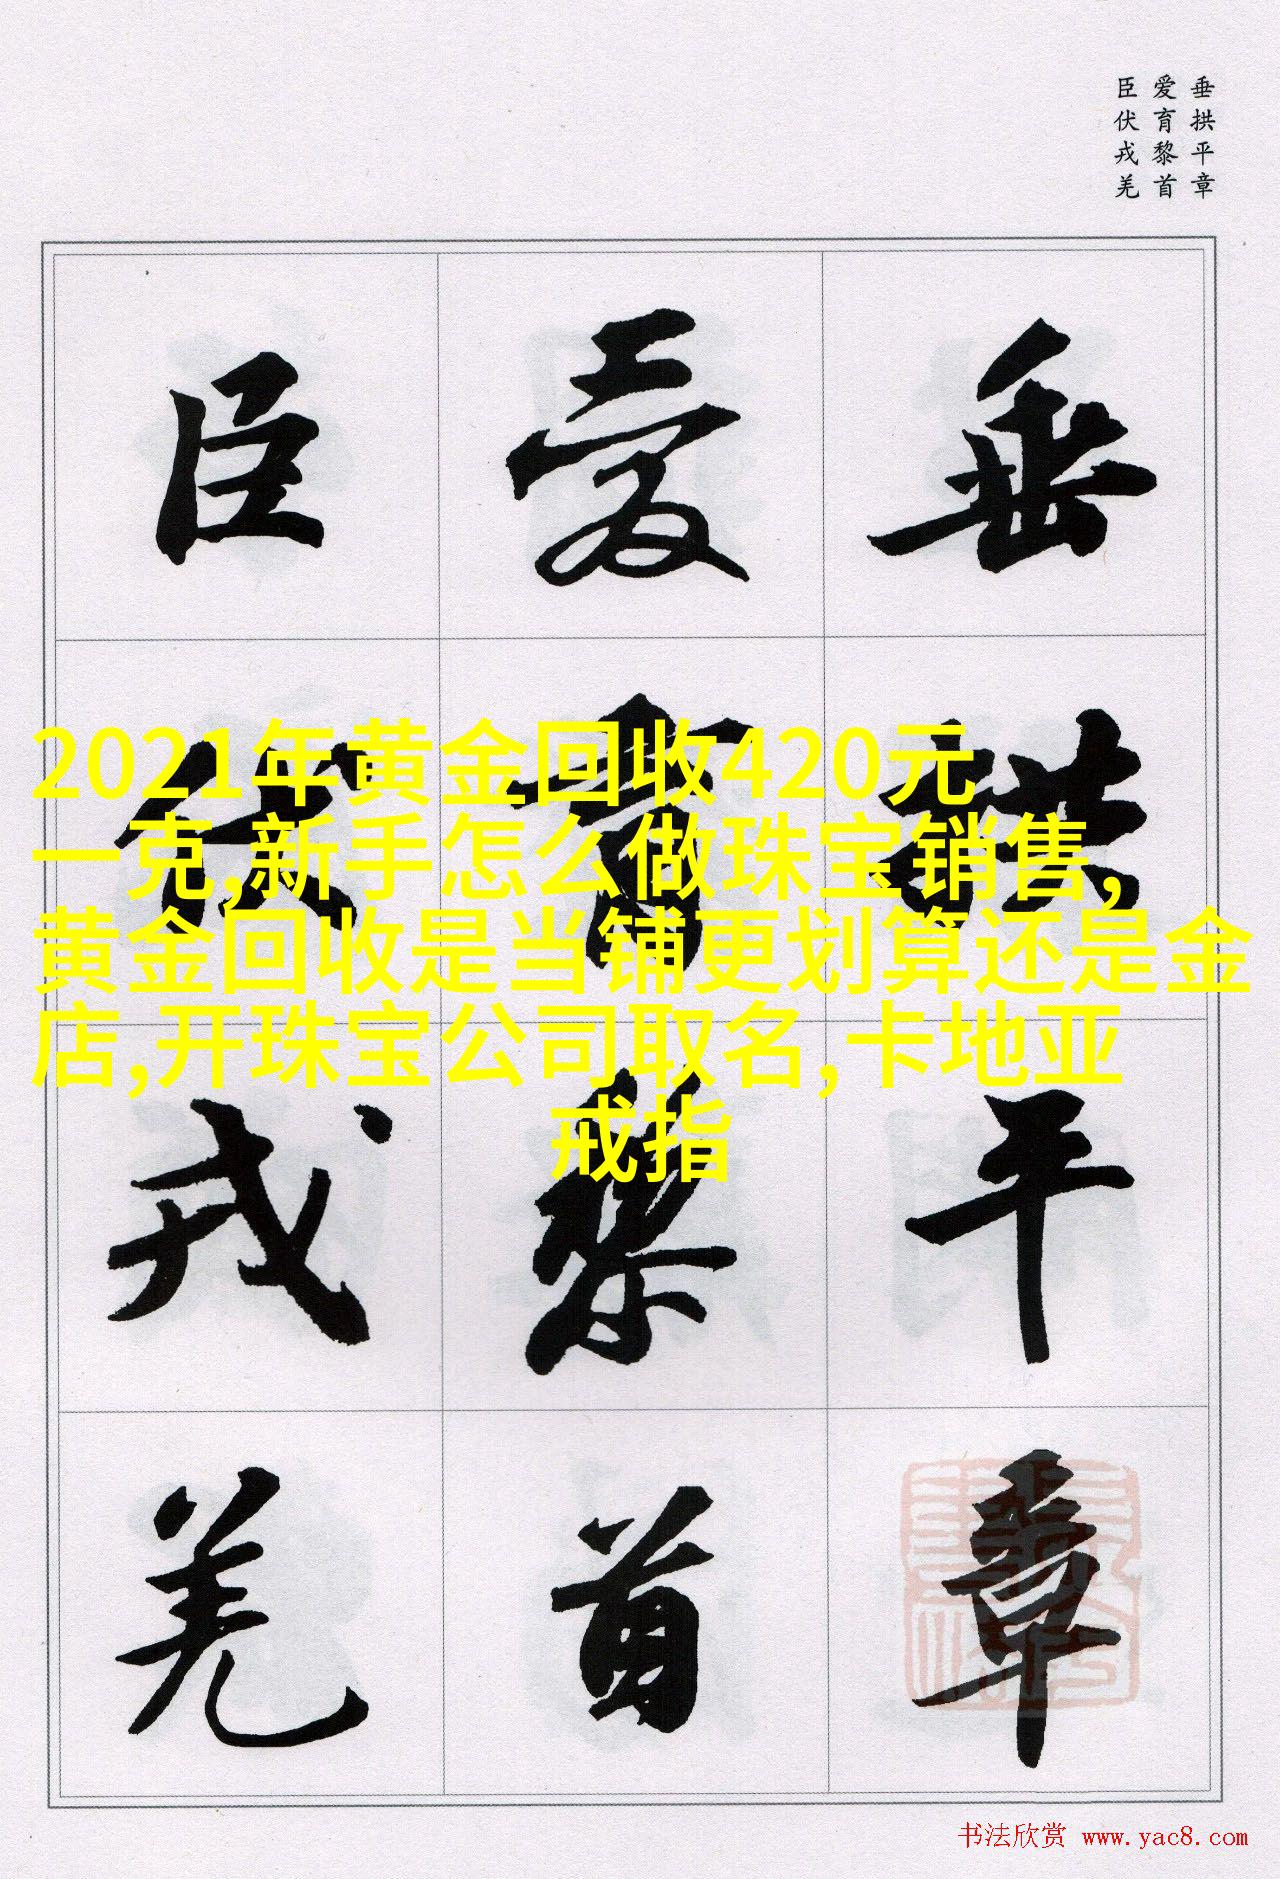 垂拱平章
爱育黎首
臣伏戎羌
垂拱平章
爱育黎首
臣伏戎羌
2021年黄金回收420元
一克,新手怎么做珠宝销售,
黄金回收是当铺更划算还是金
店,开珠宝公司取名,卡地亚
戒指
书法欣赏 www.yac8.com